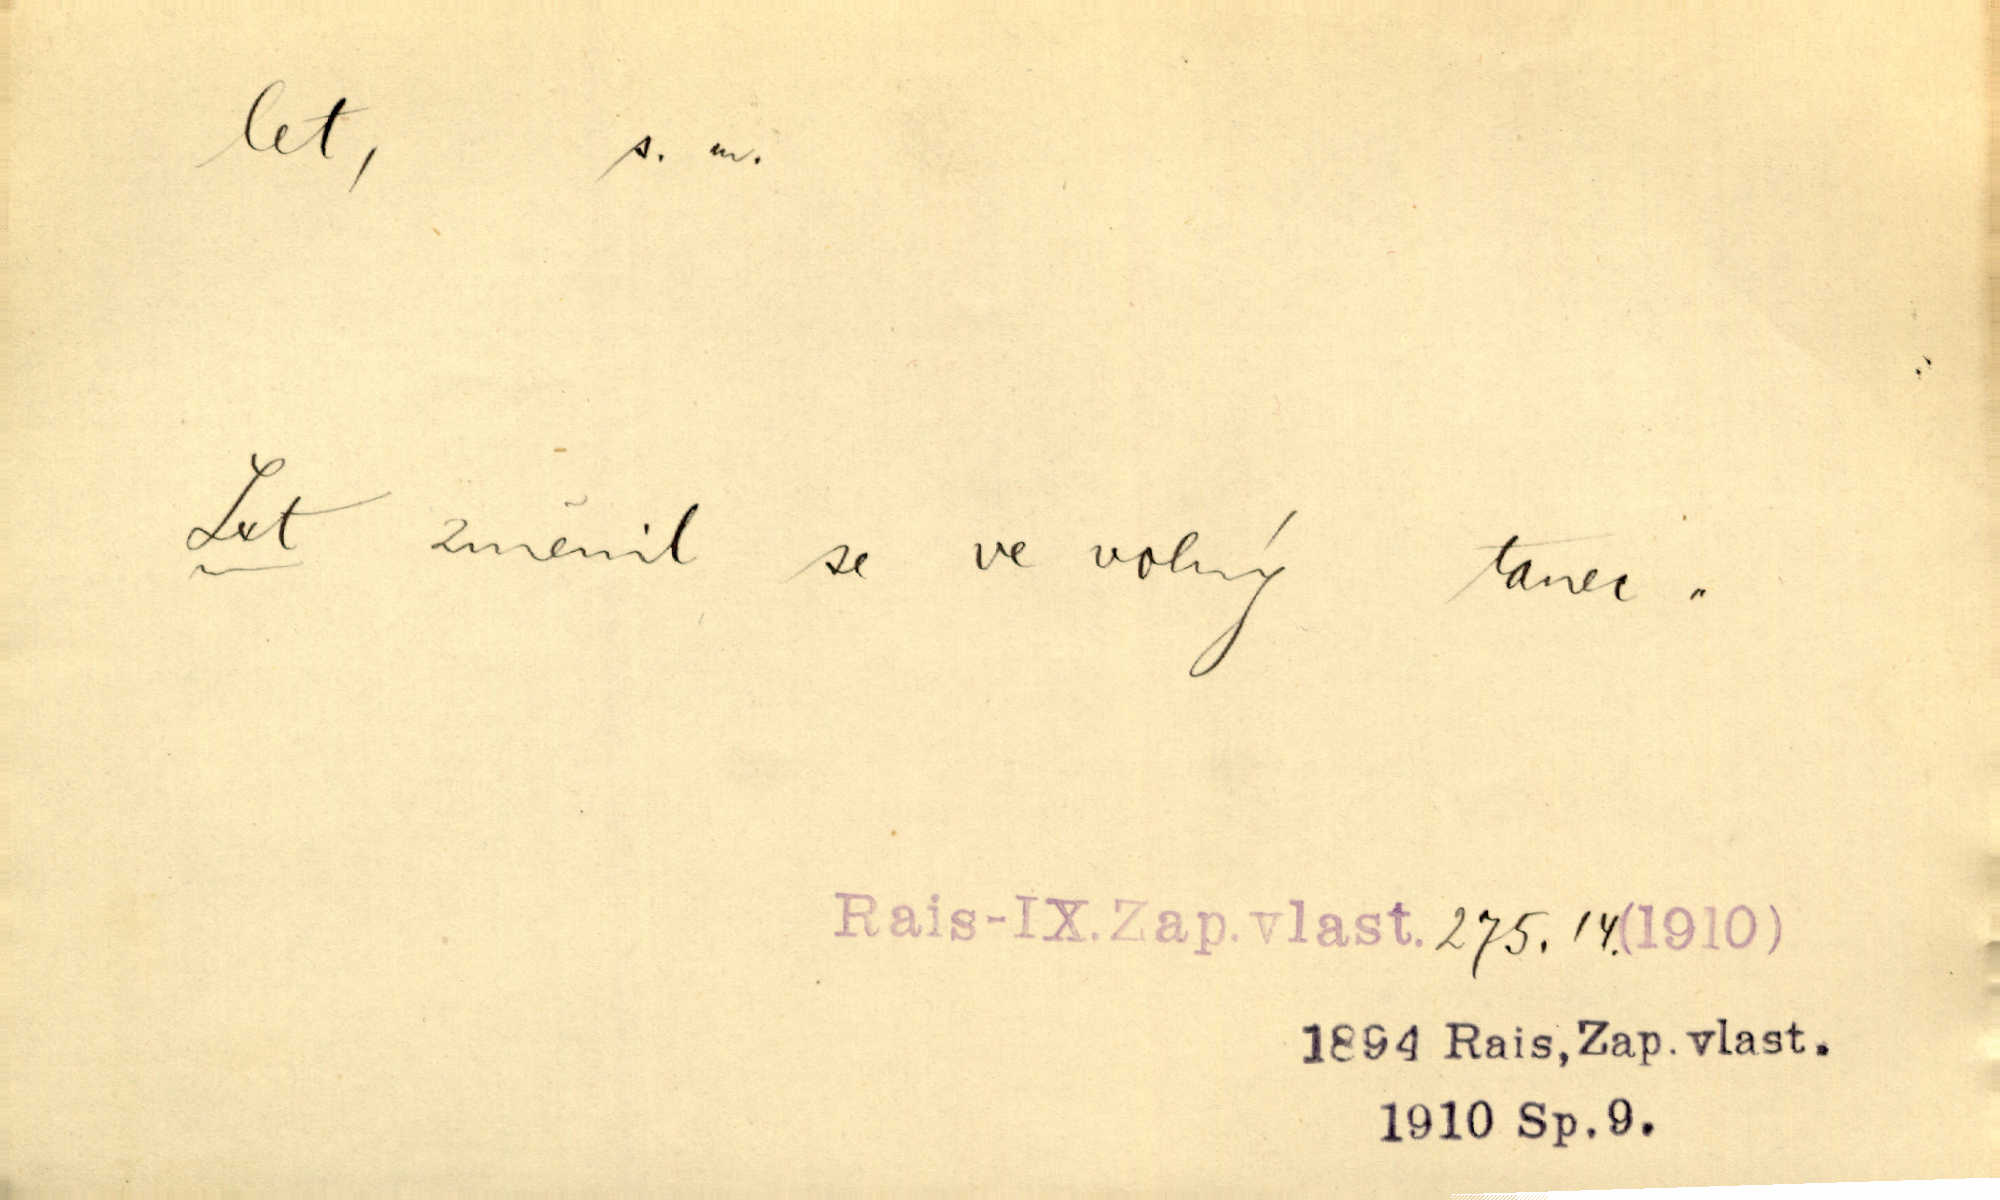 let, s. m.
Let změnil se ve volný tanec.
Rais-IX.Zap.vlast. 275. 14.(1910)
1894 Rais, Zap. vlast.
1910 Sp. 9.